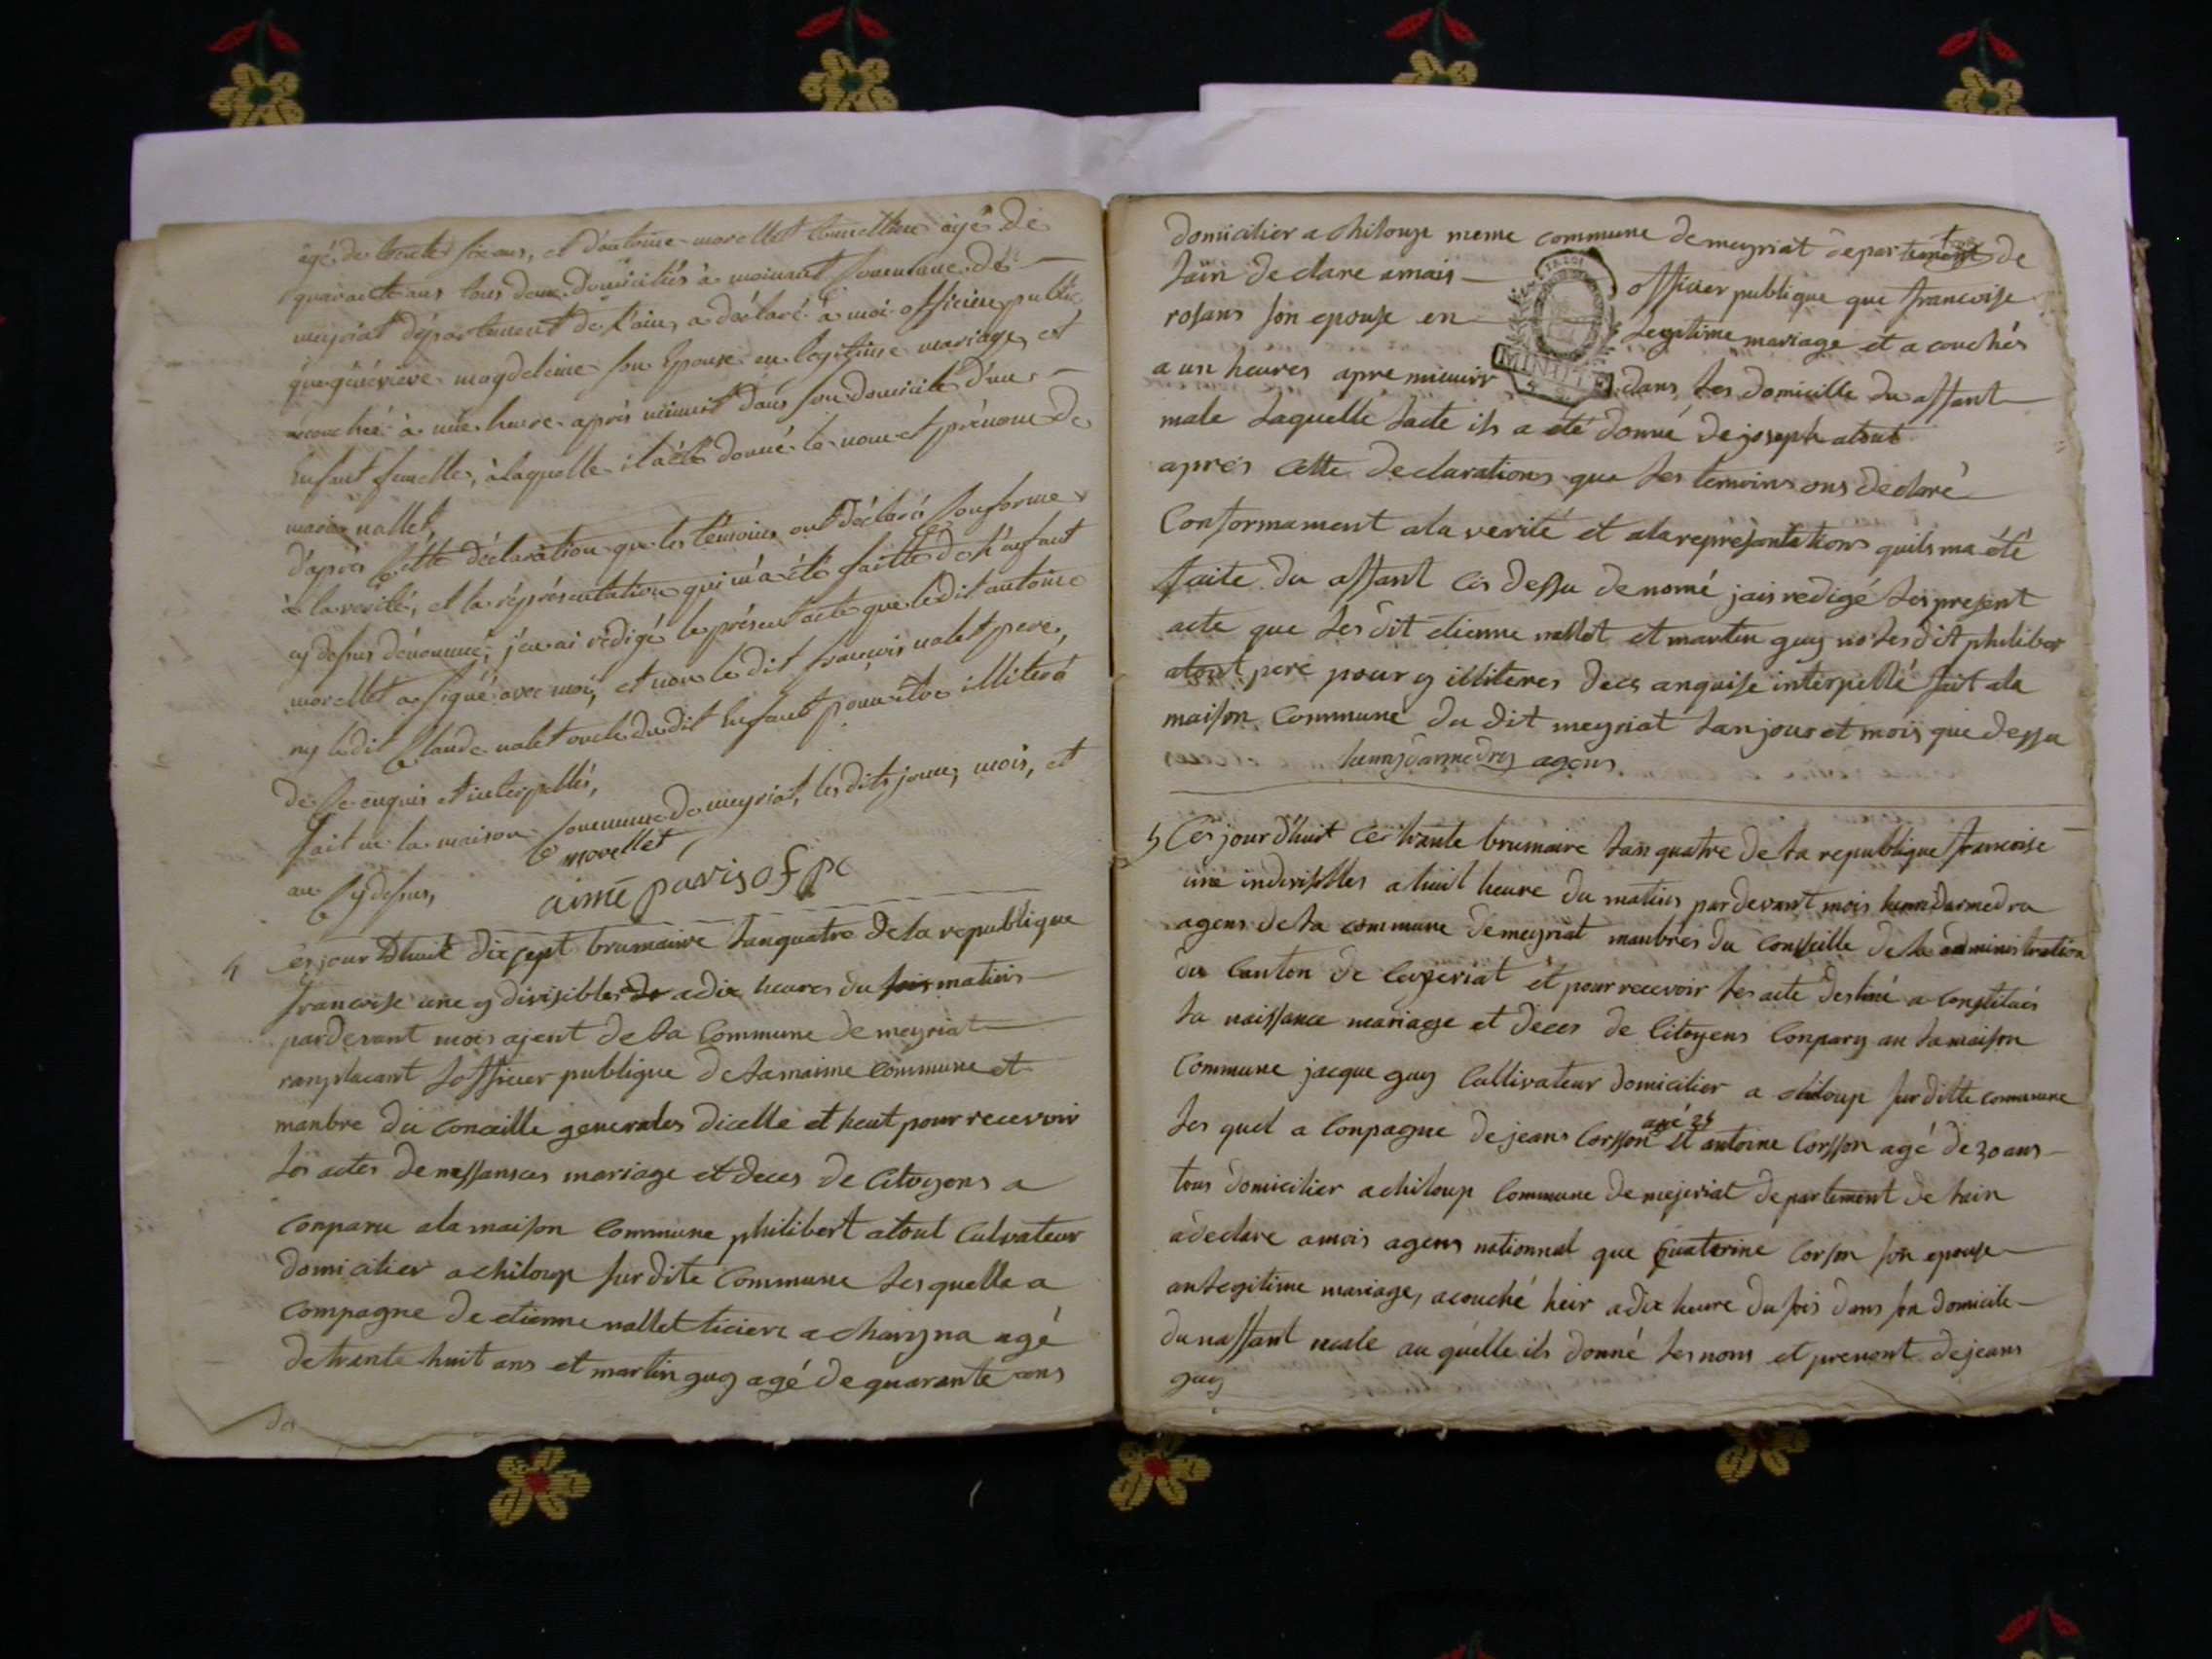 âgé de trente six ans, et d'antoine morellet tonnellier âgé de
quarante ans tous deux domiciliés à moinant commune de
meyriat département de l'ain, a déclaré à moi officier public
que généviéve magdeleine son Epouse en legitime mariage, et
accouchée à une heure après minuit dans son domicile d'une
Enfant femelle, à laquelle il a été donné le nom et prénom de
marie nallet,
d'après Cette déclaration que les témoins ont déclaré Conforme
à la verité, et la réprésentation qui m'a été faitte de l'enfant
cy dessus dénommé, j'en ai rédigé le présent acte que ledit antoine
morellet a signé avec moi, et non le dit françois nalet pere,
ny le dit Claude nalet oncle dudit Enfant pour être illiteré
de Ce enquis et interpellés,
fait en la maison Commune de meyriat, les dits jour, mois, et
an Cy dessus,
morellet
aimé paris of pc
4 Ces jour dhuit dix sept brumaire lan quatre de la republique
francoise une y divisibles de a dix heures du soir matins
pardevant mois ajent de la Commune de meyriat
ranplacant lofficier publique de la maime Commune et
manbre du conceille generales dicelle et heut pour recevoir
les actes de nessansces mariage et deces de Citoyens a
conparu a la maison Commune philibert atout Culvateur
domicilier a chiloup sur dite Commune les quelle a
compagne de etienne nallet ticiere a charigna agé
de trente huit ans et martin guy agé de quarante ans
domicilier a chiloup meme commune de meyriat departement de
lain declare a mais officier publique que francoise
rosans son epouse en legitime mariage et a couchés
a un heures apre minuit dans les domicille du assant
male laquelle lacte ils a été donné de joseph atout
aprés cette declarations que les temoins ons declaré
Conformament a la verité et a la représantations quils ma été
faite du assant Cis dessu denomé jais redigé les present
acte que les dit etienne nallet et martin guy no les dit philiber
atout peré pour y illiteres deces anquise interpellé fait a la
maison Commune du dit meyriat lan jour et mois que dessu
agens
5 Ces jour dhuit Ces trante brumaire lan quatre de la republique francoise
une indivisibles a huit heure du matins pardevant mois
agens de la commune de meyriat manbres du Conseille de la administration
du Canton de Ceyzeriat et pour recevoir les acte destiné a Constitués
la naissance mariage et deces de Citoyens Conpary an la maison
Commune jacque guy Cultivateur domicilier a chiloup sur ditte commune
les quel a Conpagne de jeans Corsson agé 25 et antoine Corsson agé de 30 ans
tous domicilier a chiloup Commune de mejeriat departement de lain
a declare a mois agens nationnal que Quaterine Corson son epouse
an legitime mariage, acouché heir a dix heure du sois dans son domicile
du nassant male au quelle ils donné les nom et prenont de jeans
guy